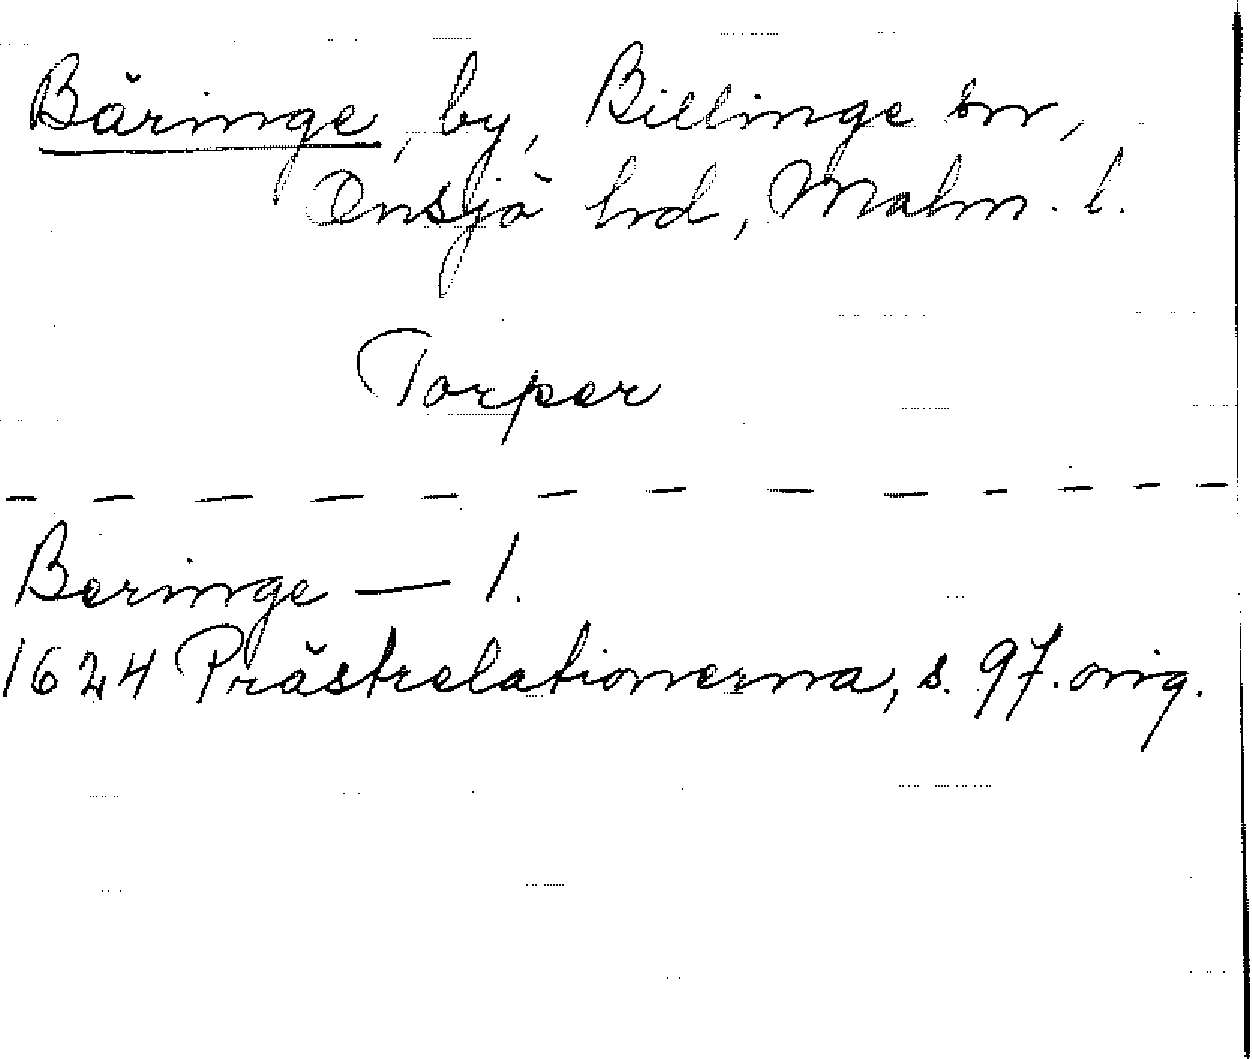 Bäringe, by, Billinge sn,
Onsjö hrd, Malm. l.
Torper
Beringe — 1.
1624 Prästrelationerna, s. 97. orig.